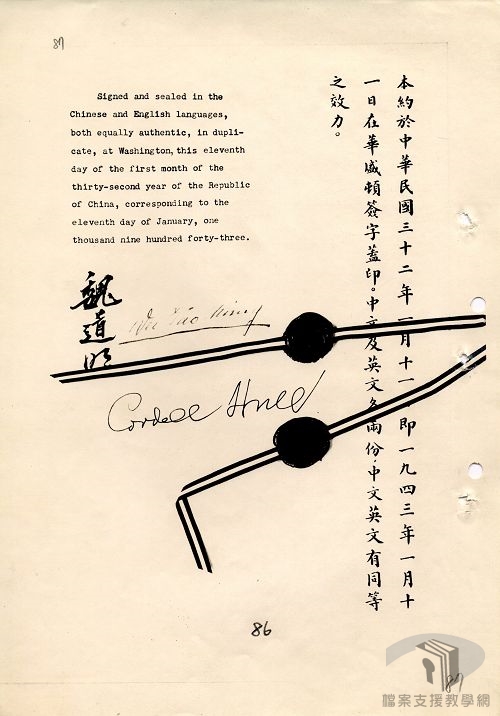 87
Signed and sealed in the
Chinese and English languages,
both equally authentic, in dupli-
cate, at Washington, this eleventh
day of the first month of the
thirty-second year of the Republic
of China, corresponding to the
eleventh day of January, one
thousand nine hundred forty-three.
本約於中華民國三十二年一月十一日即一九四三年一月十
一日在華盛頓簽字蓋印。中文及英文各兩份。中文英文有同等
之效力。
魏道明
Wei Tao Ming
Cordell Hull
86
87
檔案支援教學網